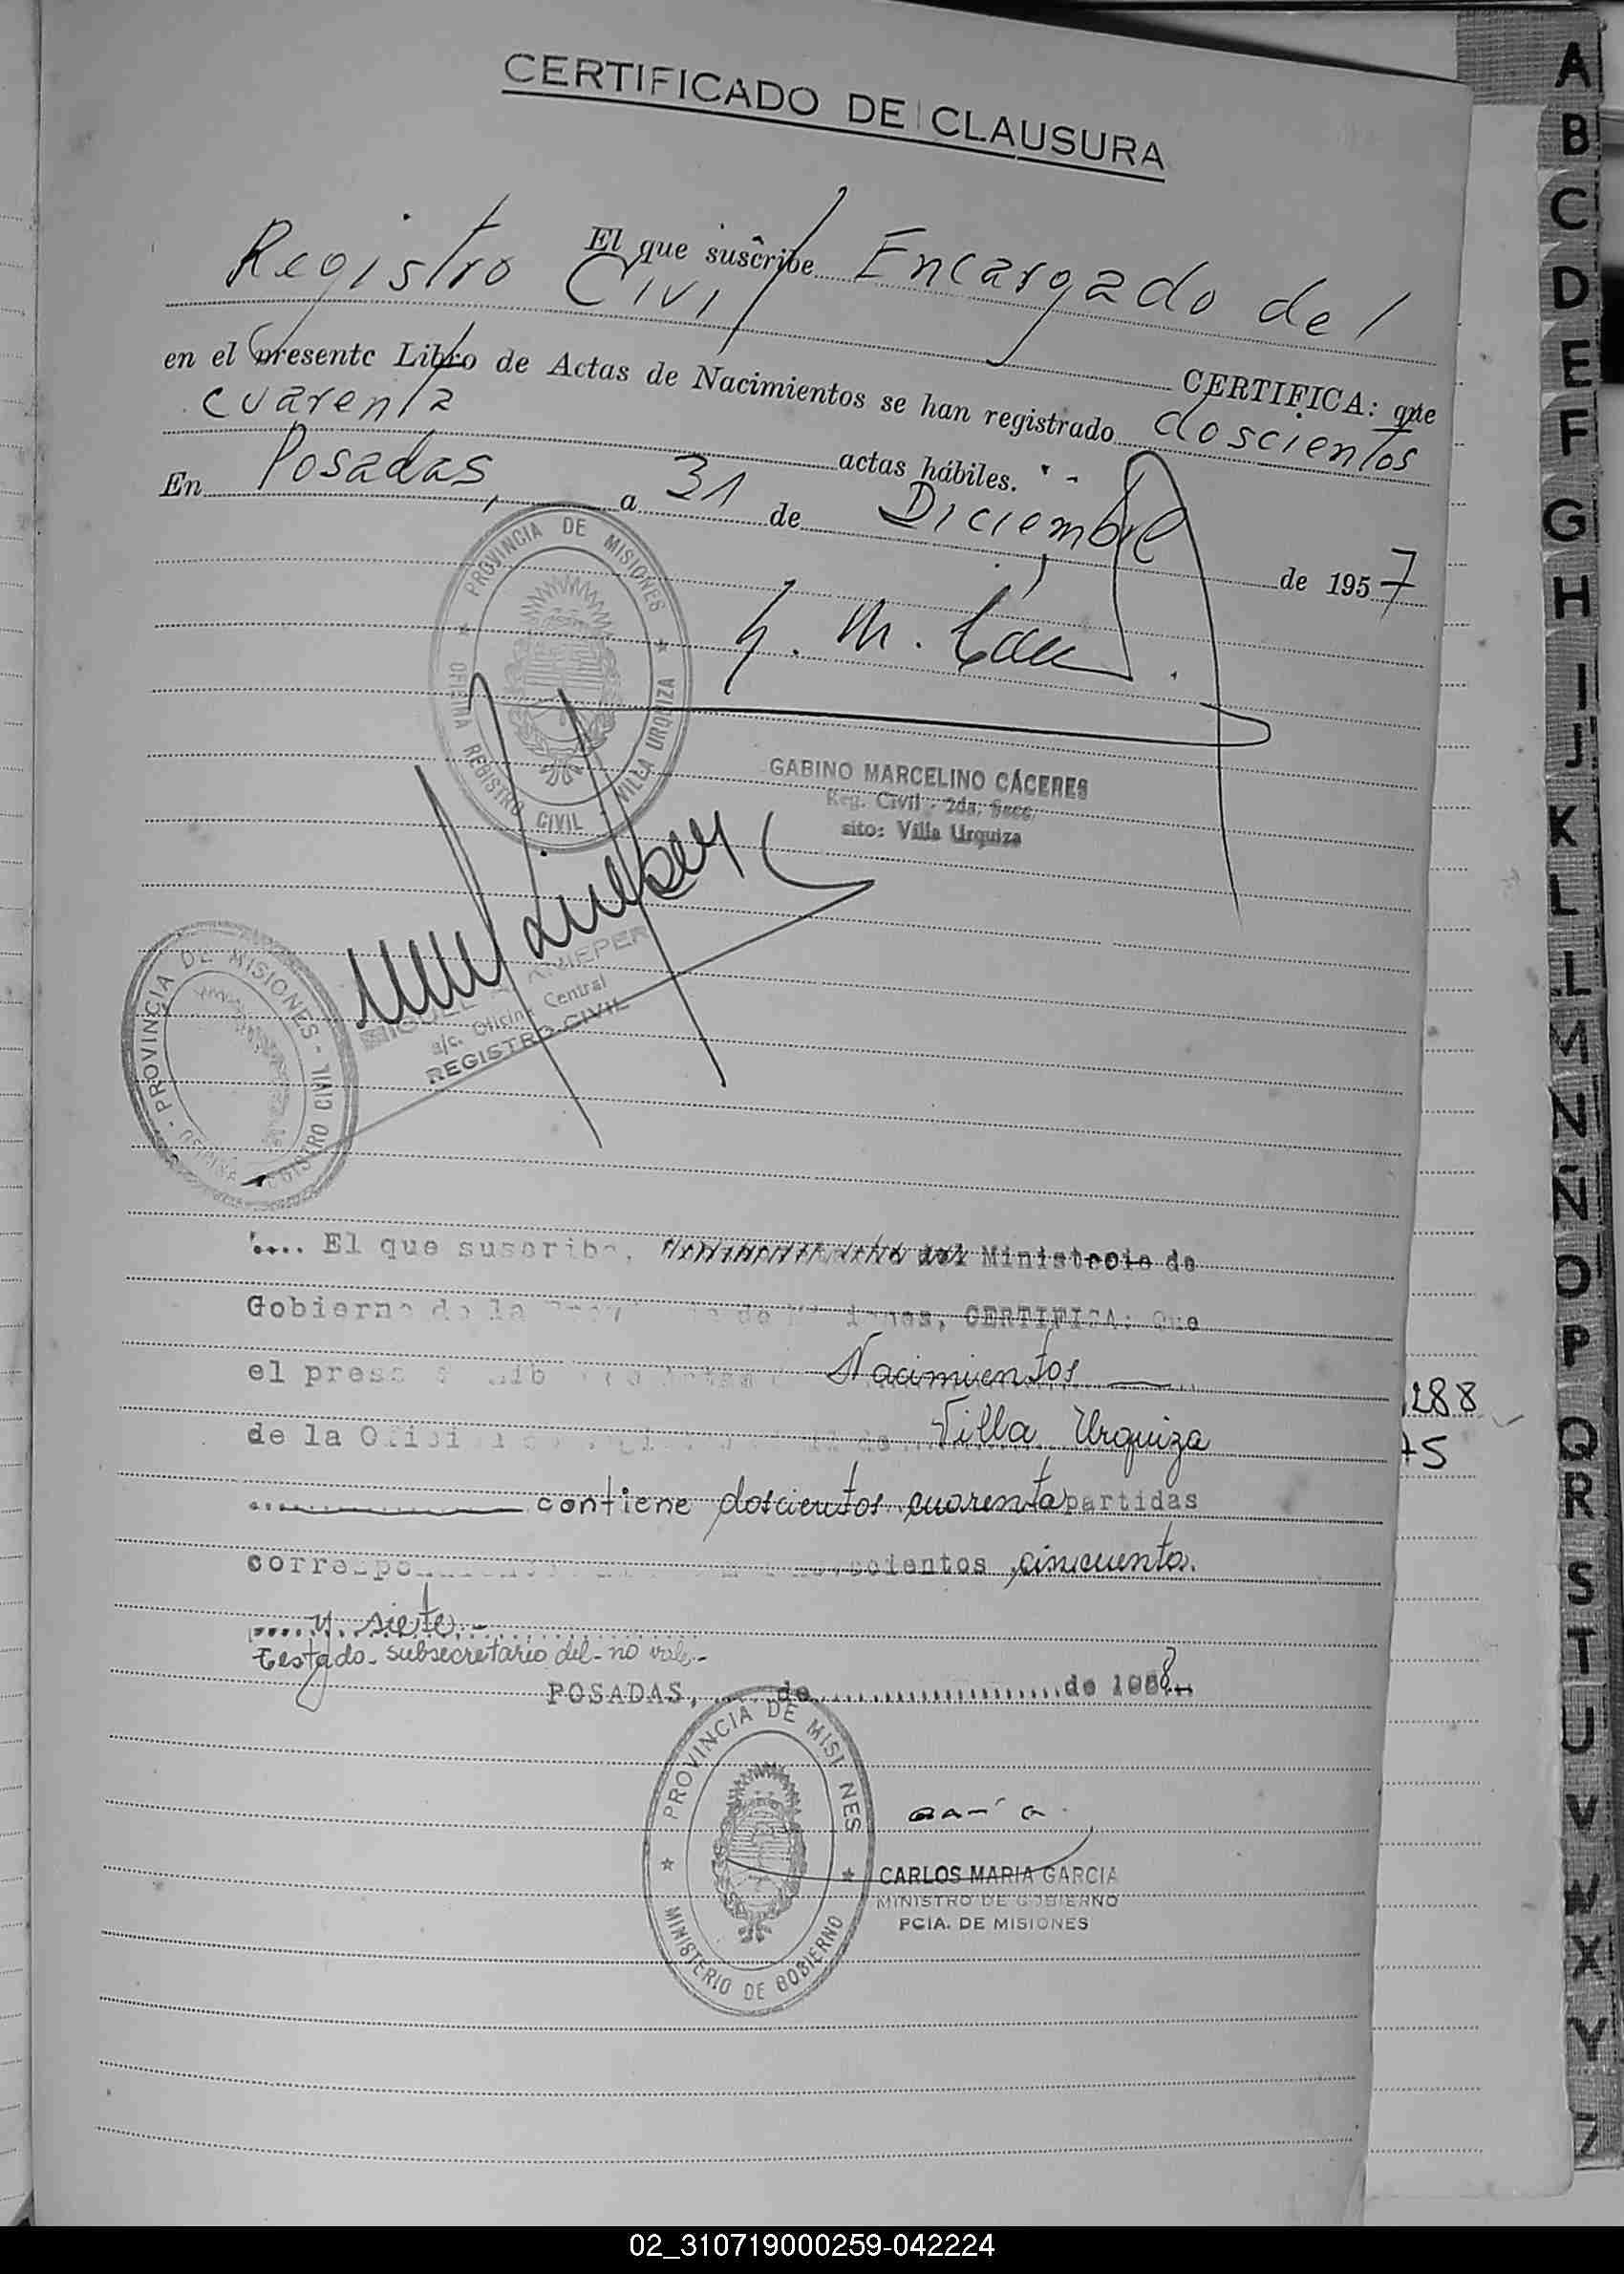 CERTIFICADO DE CLAUSURA
El que suscribe Encargado del
Registro Civil CERTIFICA: que
en el presente Libro de Actas de Nacimientos se han registrado doscientos
cuarenta actas hábiles.
En Posadas, a 31 de Diciembre de 1957
PROVINCIA DE MISIONES
OFICINA REGISTRO CIVIL - VILLA URQUIZA
GABINO MARCELINO CÁCERES
Reg. Civil - 2da. Secc.
sito: Villa Urquiza
MIGUEL A. KNIEPER
a/c. Oficina Central
REGISTRO CIVIL
PROVINCIA DE MISIONES
REGISTRO CIVIL
.... El que suscribe, Ministerio de
Gobierno de la de CERTIFICA: Que
el Nacimientos
de la Villa Urquiza
contiene doscientos cuarenta partidas
cincuenta
y siete.-
Testado - subsecretario del - no vale -
POSADAS, ..... de ..................... de 1958
PROVINCIA DE MISIONES
MINISTERIO DE GOBIERNO
CARLOS MARIA GARCIA
MINISTRO DE GOBIERNO
PCIA. DE MISIONES
288
75
A
B
C
D
E
F
G
H
I
J
K
L
M
N
Ñ
O
P
Q
R
S
T
U
V
W
X
Y
Z
02_310719000259-042224